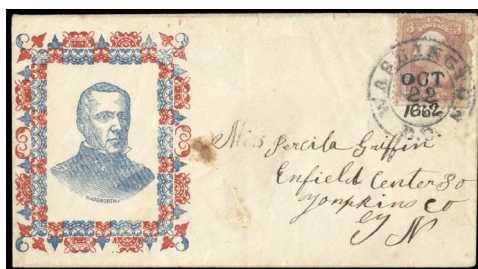 3 3
POSTAGE
WASHINGTON
OCT
22
1862
D.C.
WADSWORTH.
Miss Percila Griffin
Enfield Center So
Tompkins Co
N Y